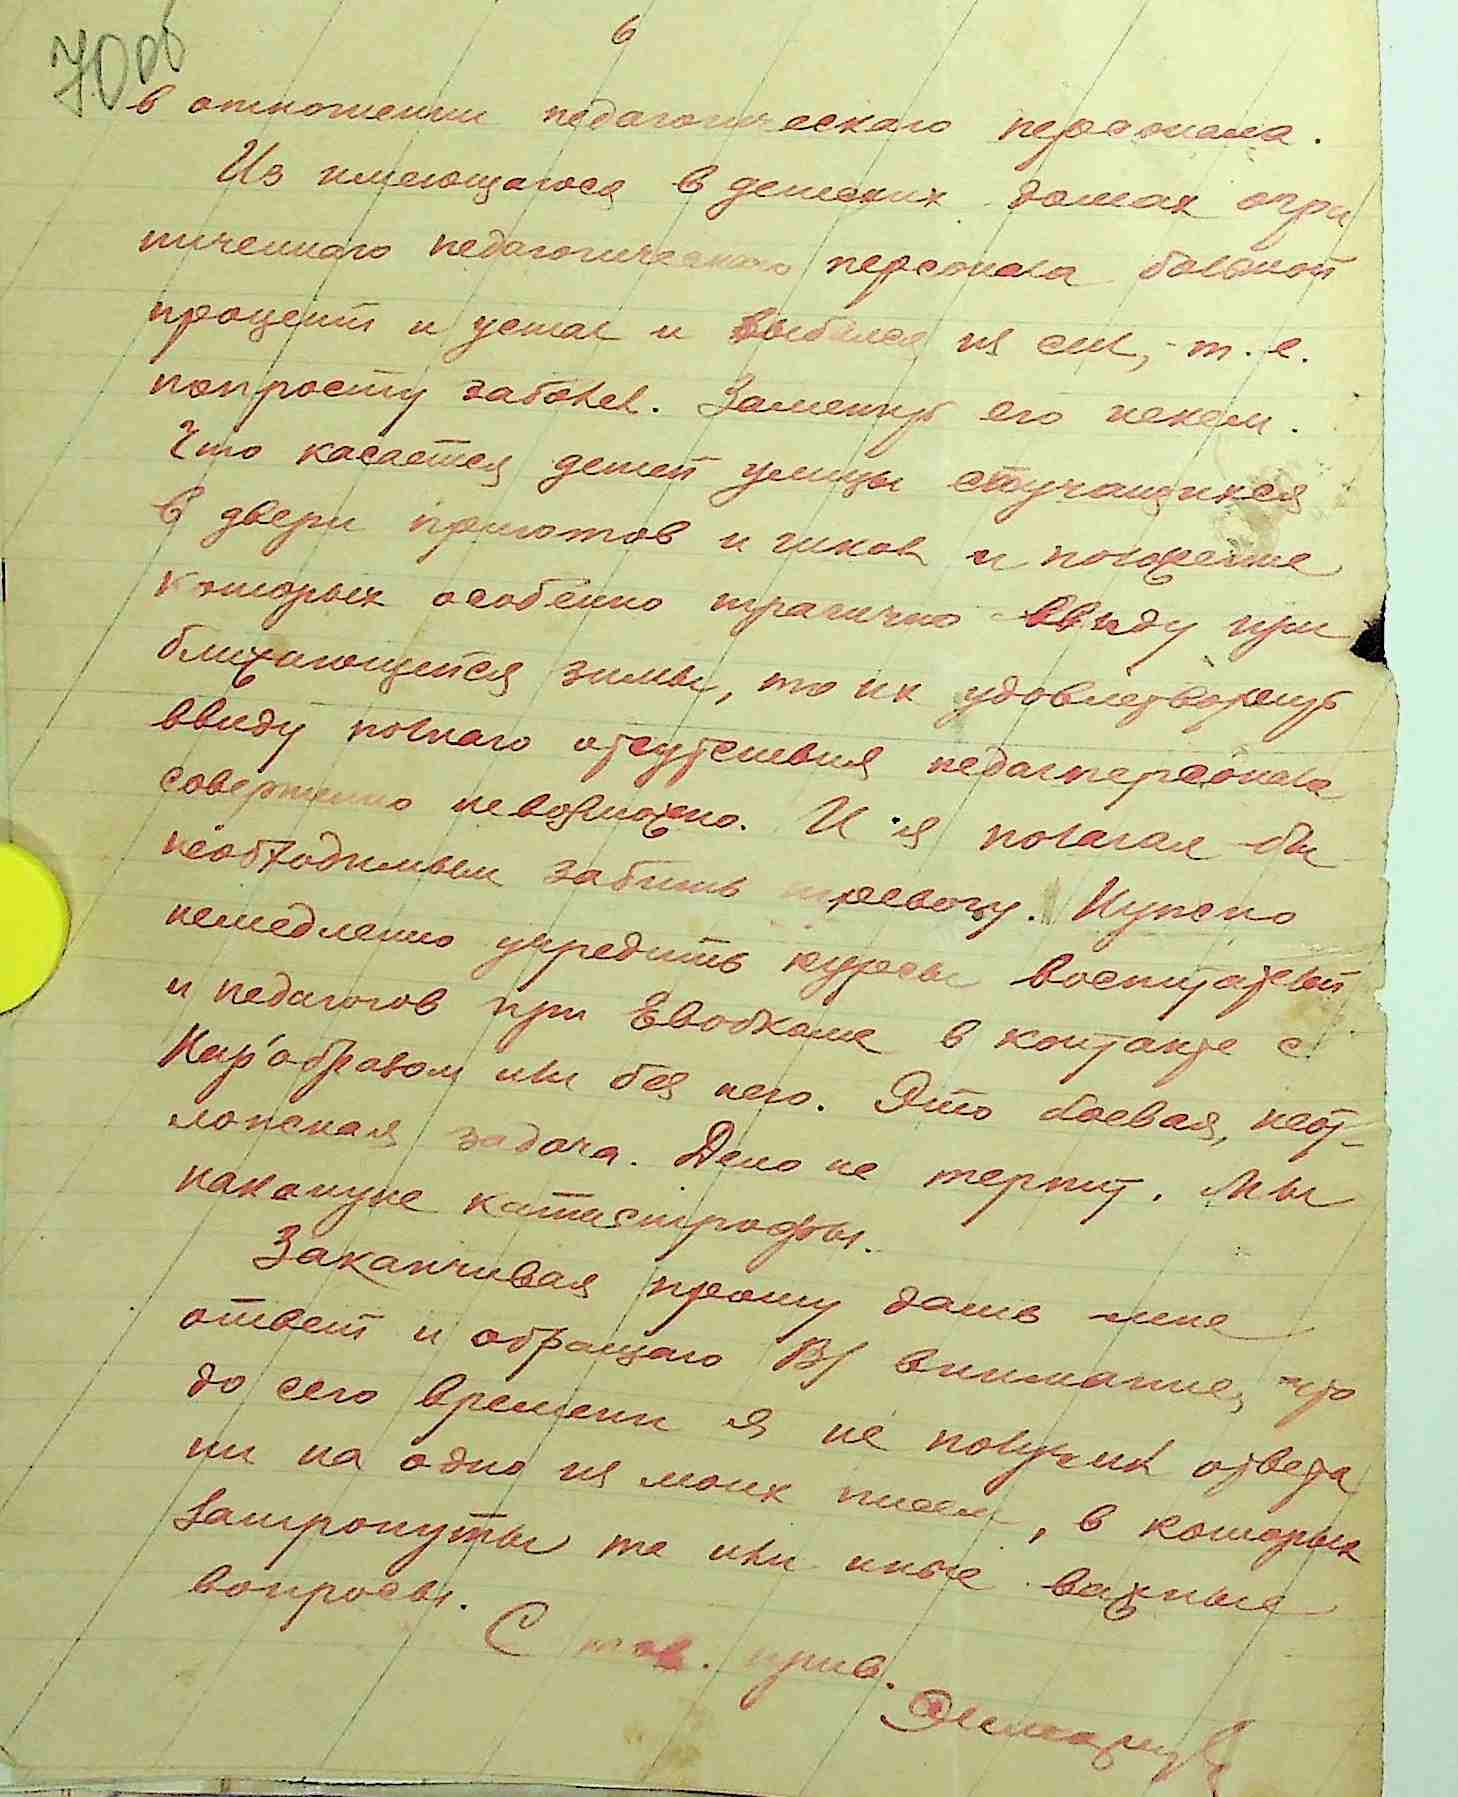 6
70 об
в отношении педагогическаго персонала.
Из имеющагося в детских домах огра
ниченнаго педагогическаго персонала большой
процент и устал и выбился из сил, - т. е.
попросту заболел. Заменить его некем.
Что касается детей улицы стучащихся
в двери приютов и школ и положение
которых особенно трагично ввиду при
ближающейся зимы, то их удовлетворить
ввиду полнаго отсутствия педагперсонала
совершенно невозможно. И я полагал бы
необходимым забить тревогу. Нужно
немедленно учредить курсы воспитателей
и педагогов при Евобкоме в контакте с
Нар'образом или без него. Это боевая, неот-
ложная задача. Дело не терпит. Мы
накануне катастрофы.
Заканчивая прошу дать мне
ответ и обращаю В/ внимание, что
до сего времени я не получил ответа
ни на одно из моих писем, в которых
затронуты те или иные важные
вопросы.
С тов. прив.